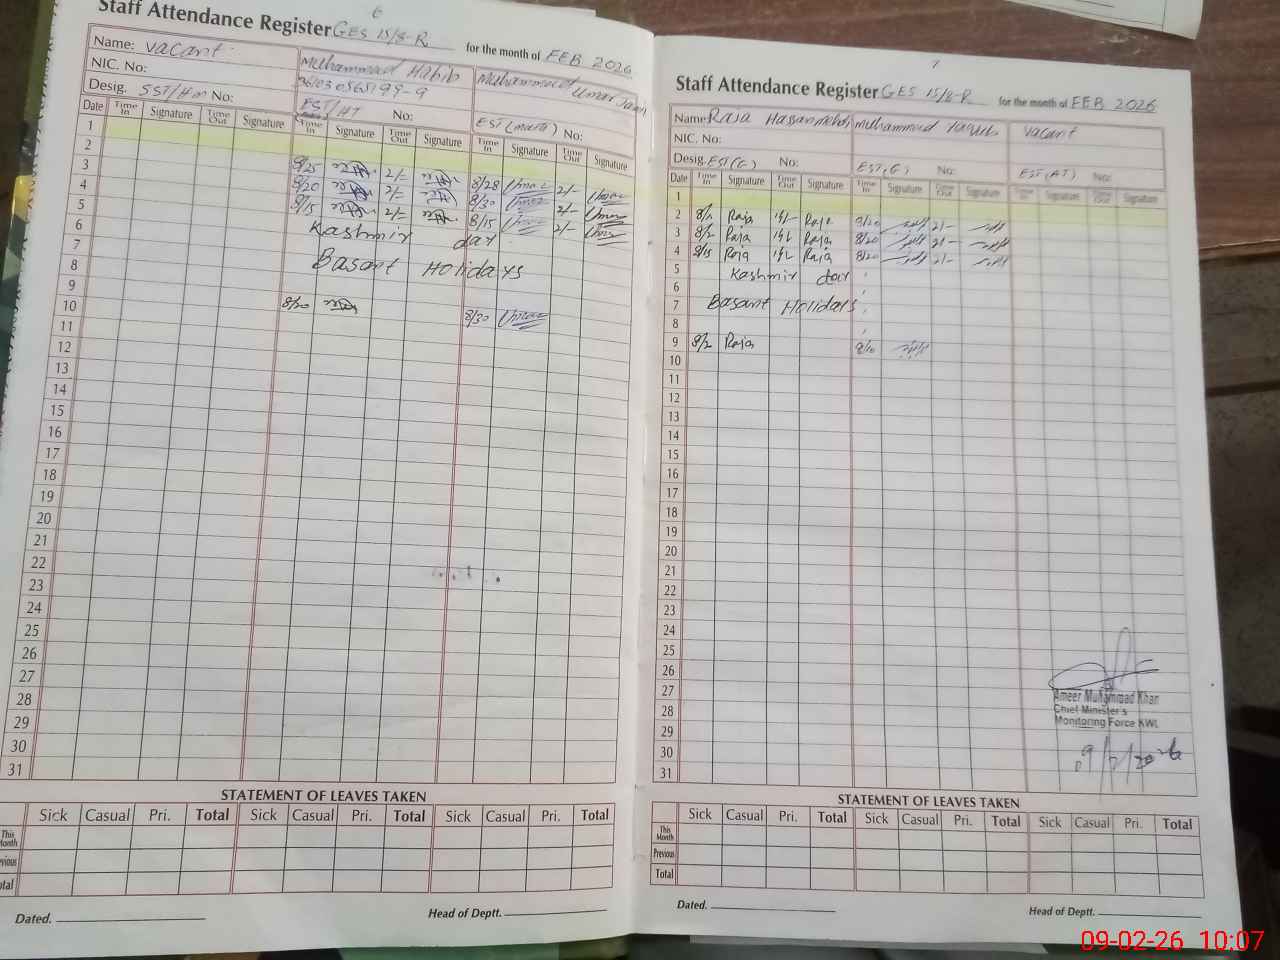 6
Staff Attendance Register GES 15/8-R for the month of FEB 2026
Name: vacant
NIC. No:
Desig. SST/Hm No:
Muhammad Habib
EST/HT No:
Muhammad Umar
EST (math) No:
Date Time In Signature Time Out Signature Time In Signature Time Out Signature Time In Signature Time Out Signature
1
2
3 8/25 2/- 8/28 Umar 2/- Umar
4 8/20 2/- 8/30 Umar 2/- Umar
5 8/15 2/- 8/15 Umar 2/- Umar
6 Kashmir day
7
8 Basant Holidays
9
10 8/20 8/30 Umar
11
12
13
14
15
16
17
18
19
20
21
22
23
24
25
26
27
28
29
30
31
STATEMENT OF LEAVES TAKEN
Sick Casual Pri. Total Sick Casual Pri. Total Sick Casual Pri. Total
This Month
Previous
Total
Dated. Head of Deptt.
7
Staff Attendance Register GES 15/8-R for the month of FEB 2026
Name Raja Hassan Mehdi Muhammad Yaqub vacant
NIC. No:
Desig. EST(G) No: EST(G) No: EST(AT) No:
Date Time In Signature Time Out Signature Time In Signature Time Out Signature Time In Signature Time Out Signature
1
2 Raja Raja 8/20 2/-
3 Raja Raja 8/20 2/-
4 8/15 Raja Raja 8/20 2/-
5 Kashmir day
6
7 Basant Holidays
8
9 Raja 8/10
10
11
12
13
14
15
16
17
18
19
20
21
22
23
24
25
26
27
28
29
30
31
Ameer Muhammad Khan
Chief Minister's
Monitoring Force KWL
09/2/2026
STATEMENT OF LEAVES TAKEN
Sick Casual Pri. Total Sick Casual Pri. Total Sick Casual Pri. Total
This Month
Previous
Total
Dated. Head of Deptt.
09-02-26 10:07